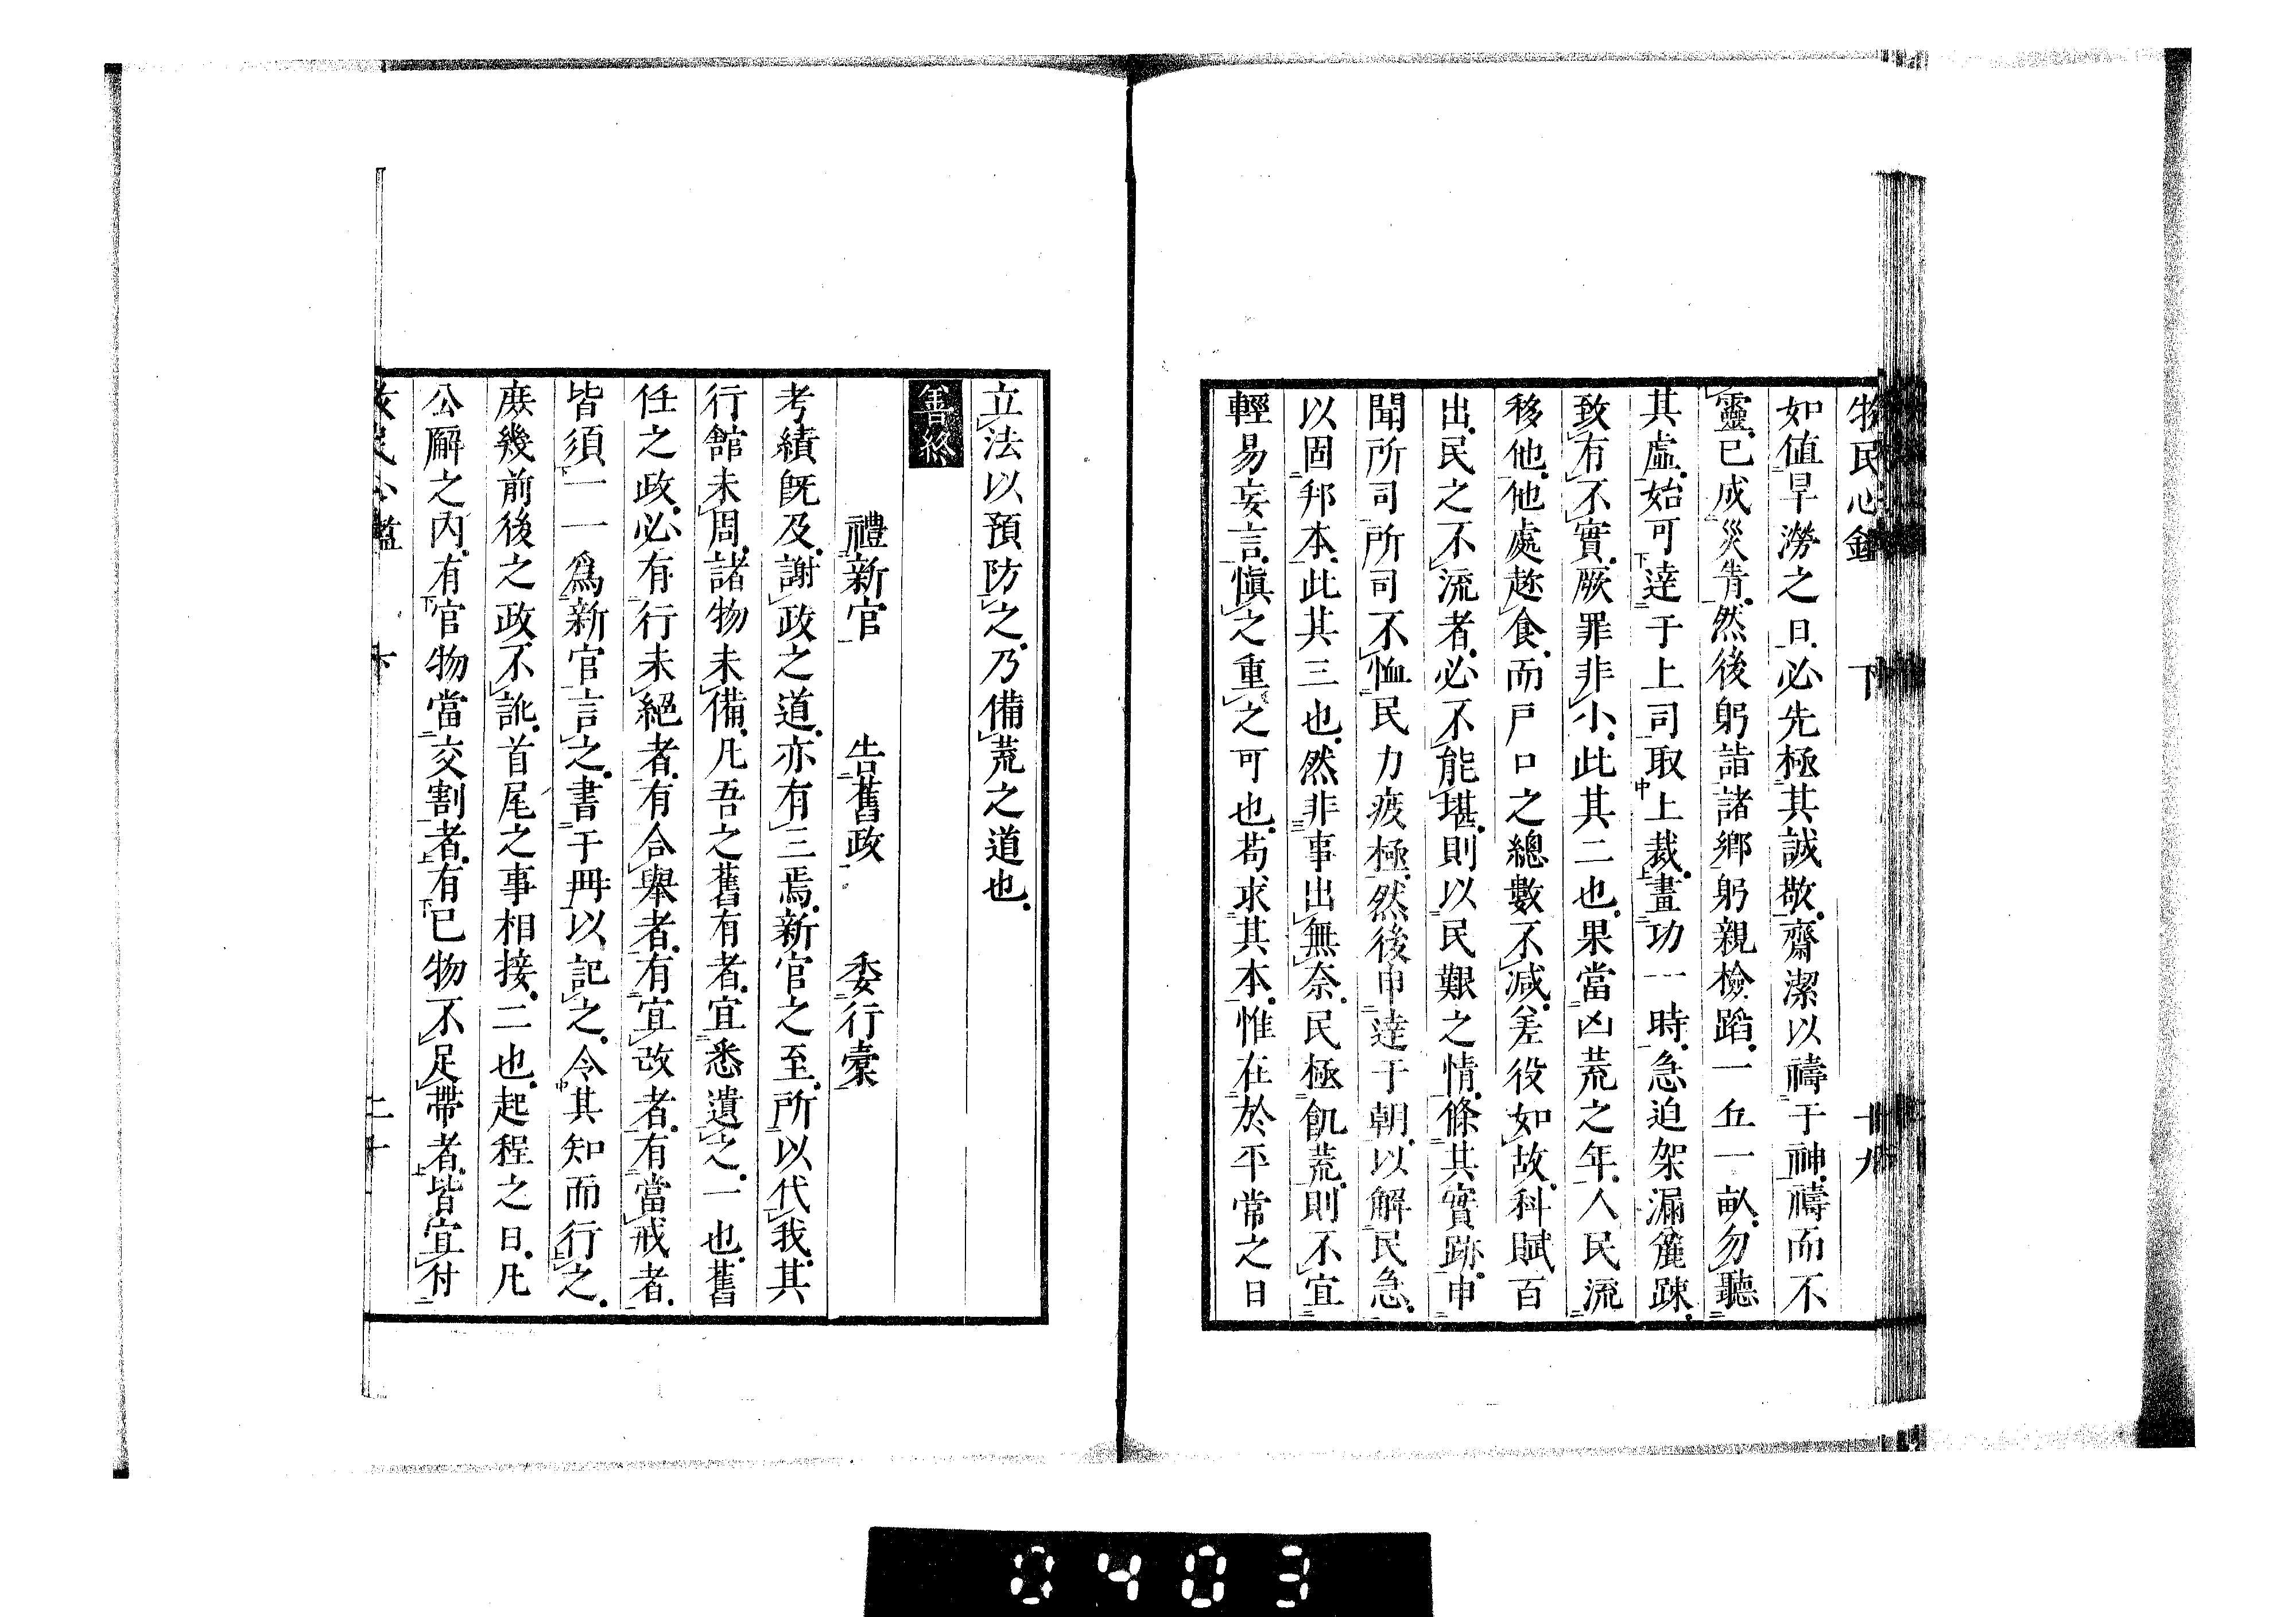 牧民心鑑　下　十九
如値旱澇之日必先極其誠敬齋潔以禱于神禱而不
靈已成災眚然後躬詣諸郷躬親檢蹈一丘一畝勿聽
其虛始可達于上司取上裁畫功一時急迫架漏麄踈
致有不實厥罪非小此其二也果當凶荒之年人民流
移他他處趂食而戸口之總數不減差役如故科賦百
出民之不流者必不能堪則以民艱之情條其實跡申
聞所司所司不恤民力疲極然後申達于朝以解民急
以固邦本此其三也然非事出無奈民極飢荒則不宜
輕易妄言愼之重之可也苟求其本惟在於平常之日
立法以預防之乃備荒之道也
善終
禮新官　告舊政　委行槖
考績旣及謝政之道亦有三焉新官之至所以代我其
行館未周諸物未備凡吾之舊有者宜悉遺之一也舊
任之政必有行未絕者有合舉者有宜改者有當戒者
皆須一一爲新官言之書于冊以記之令其知而行之
庶幾前後之政不訛首尾之事相接二也起程之日凡
公廨之內有官物當交割者有已物不足帶者皆宜付